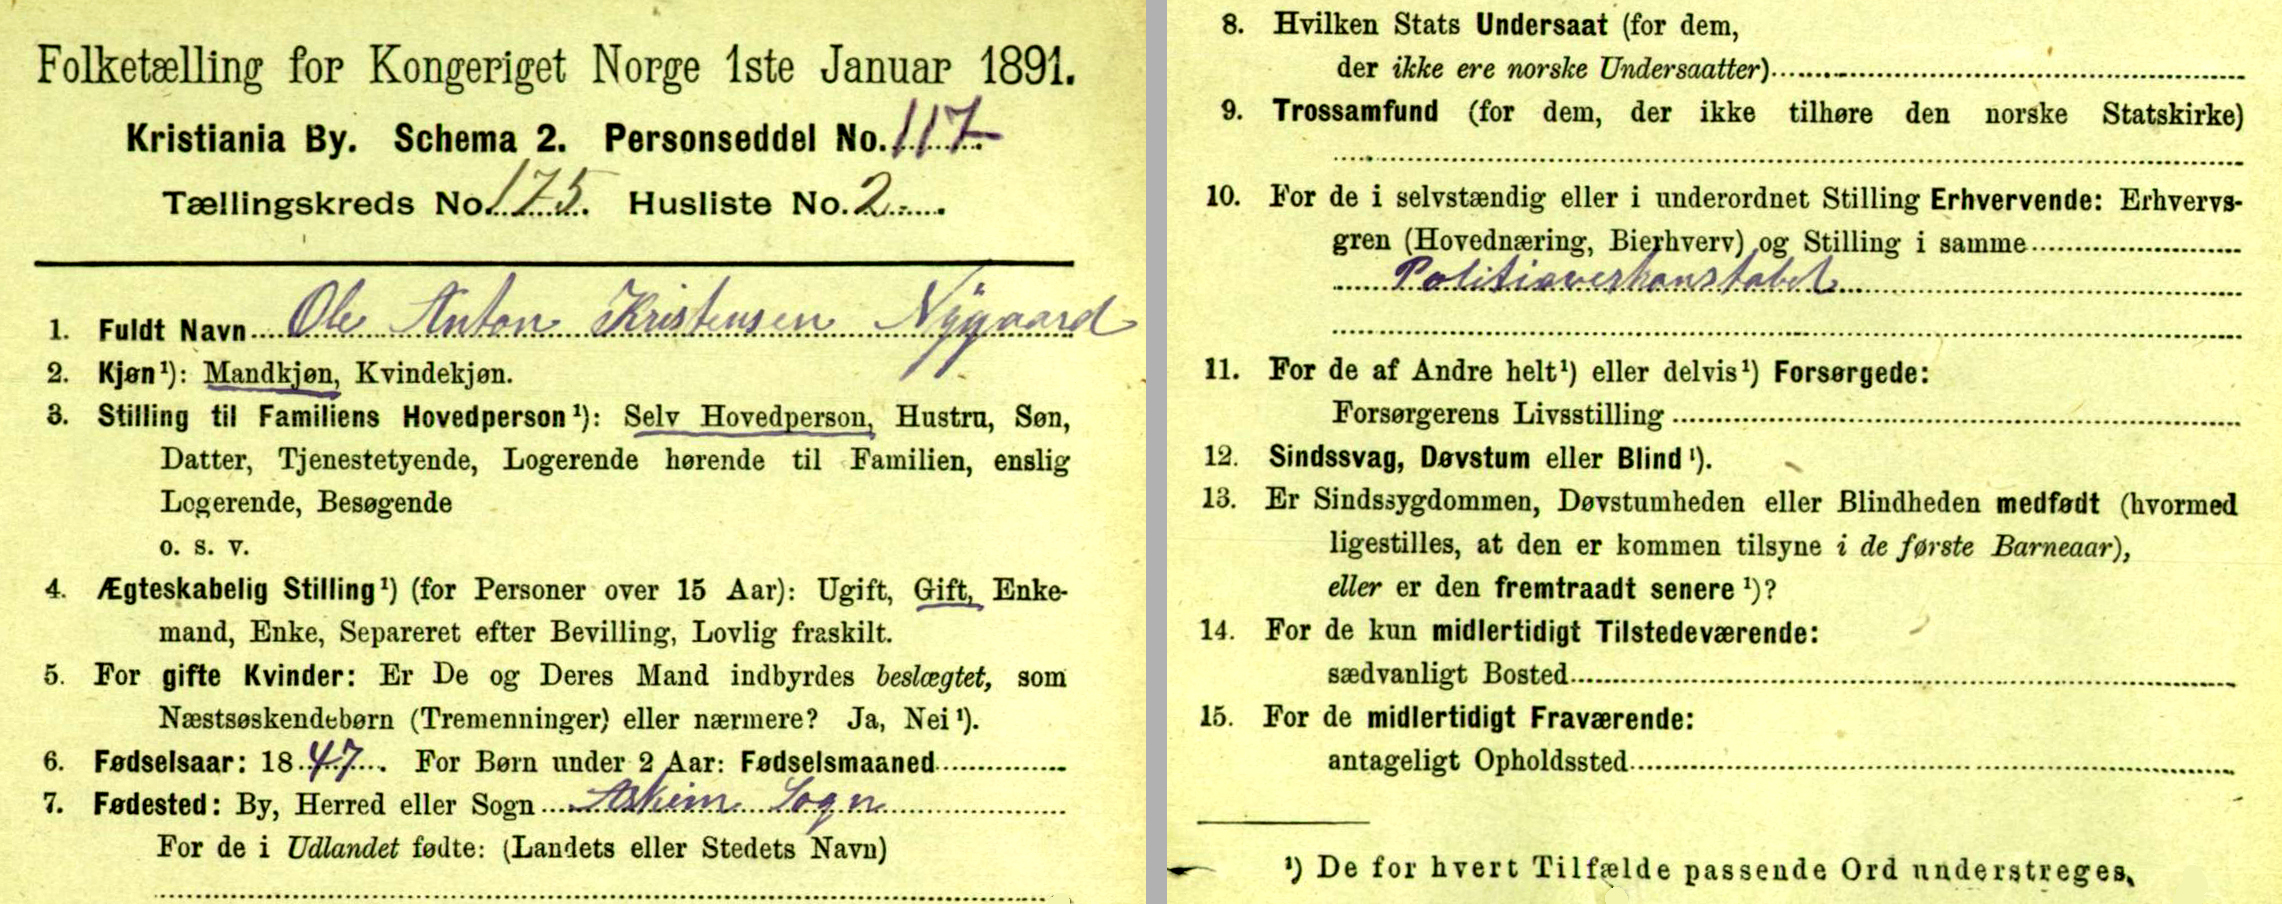 Folketælling for Kongeriget Norge 1ste Januar 1891.
Kristiania By. Schema 2. Personseddel No. 117
Tællingskreds No. 175. Husliste No. 2
1. Fuldt Navn Ole Anton Kristensen Nygaard
2. Kjøn¹): Mandkjøn, Kvindekjøn.
3. Stilling til Familiens Hovedperson¹): Selv Hovedperson, Hustru, Søn,
Datter, Tjenestetyende, Logerende hørende til Familien, enslig
Logerende, Besøgende
o. s. v.
4. Ægteskabelig Stilling¹) (for Personer over 15 Aar): Ugift, Gift, Enke-
mand, Enke, Separeret efter Bevilling, Lovlig fraskilt.
5. For gifte Kvinder: Er De og Deres Mand indbyrdes beslægtet, som
Næstsøskendebørn (Tremenninger) eller nærmere? Ja, Nei¹).
6. Fødselsaar: 1847. For Børn under 2 Aar: Fødselsmaaned
7. Fødested: By, Herred eller Sogn Askim Sogn
For de i Udlandet fødte: (Landets eller Stedets Navn)
8. Hvilken Stats Undersaat (for dem,
der ikke ere norske Undersaatter)
9. Trossamfund (for dem, der ikke tilhøre den norske Statskirke)
10. For de i selvstændig eller i underordnet Stilling Erhvervende: Erhvervs-
gren (Hovednæring, Bierhverv) og Stilling i samme
Politioverkonstabel
11. For de af Andre helt¹) eller delvis¹) Forsørgede:
Forsørgerens Livsstilling
12. Sindssvag, Døvstum eller Blind¹).
13. Er Sindssygdommen, Døvstumheden eller Blindheden medfødt (hvormed
ligestilles, at den er kommen tilsyne i de første Barneaar),
eller er den fremtraadt senere¹)?
14. For de kun midlertidigt Tilstedeværende:
sædvanligt Bosted
15. For de midlertidigt Fraværende:
antageligt Opholdssted
¹) De for hvert Tilfælde passende Ord understreges.